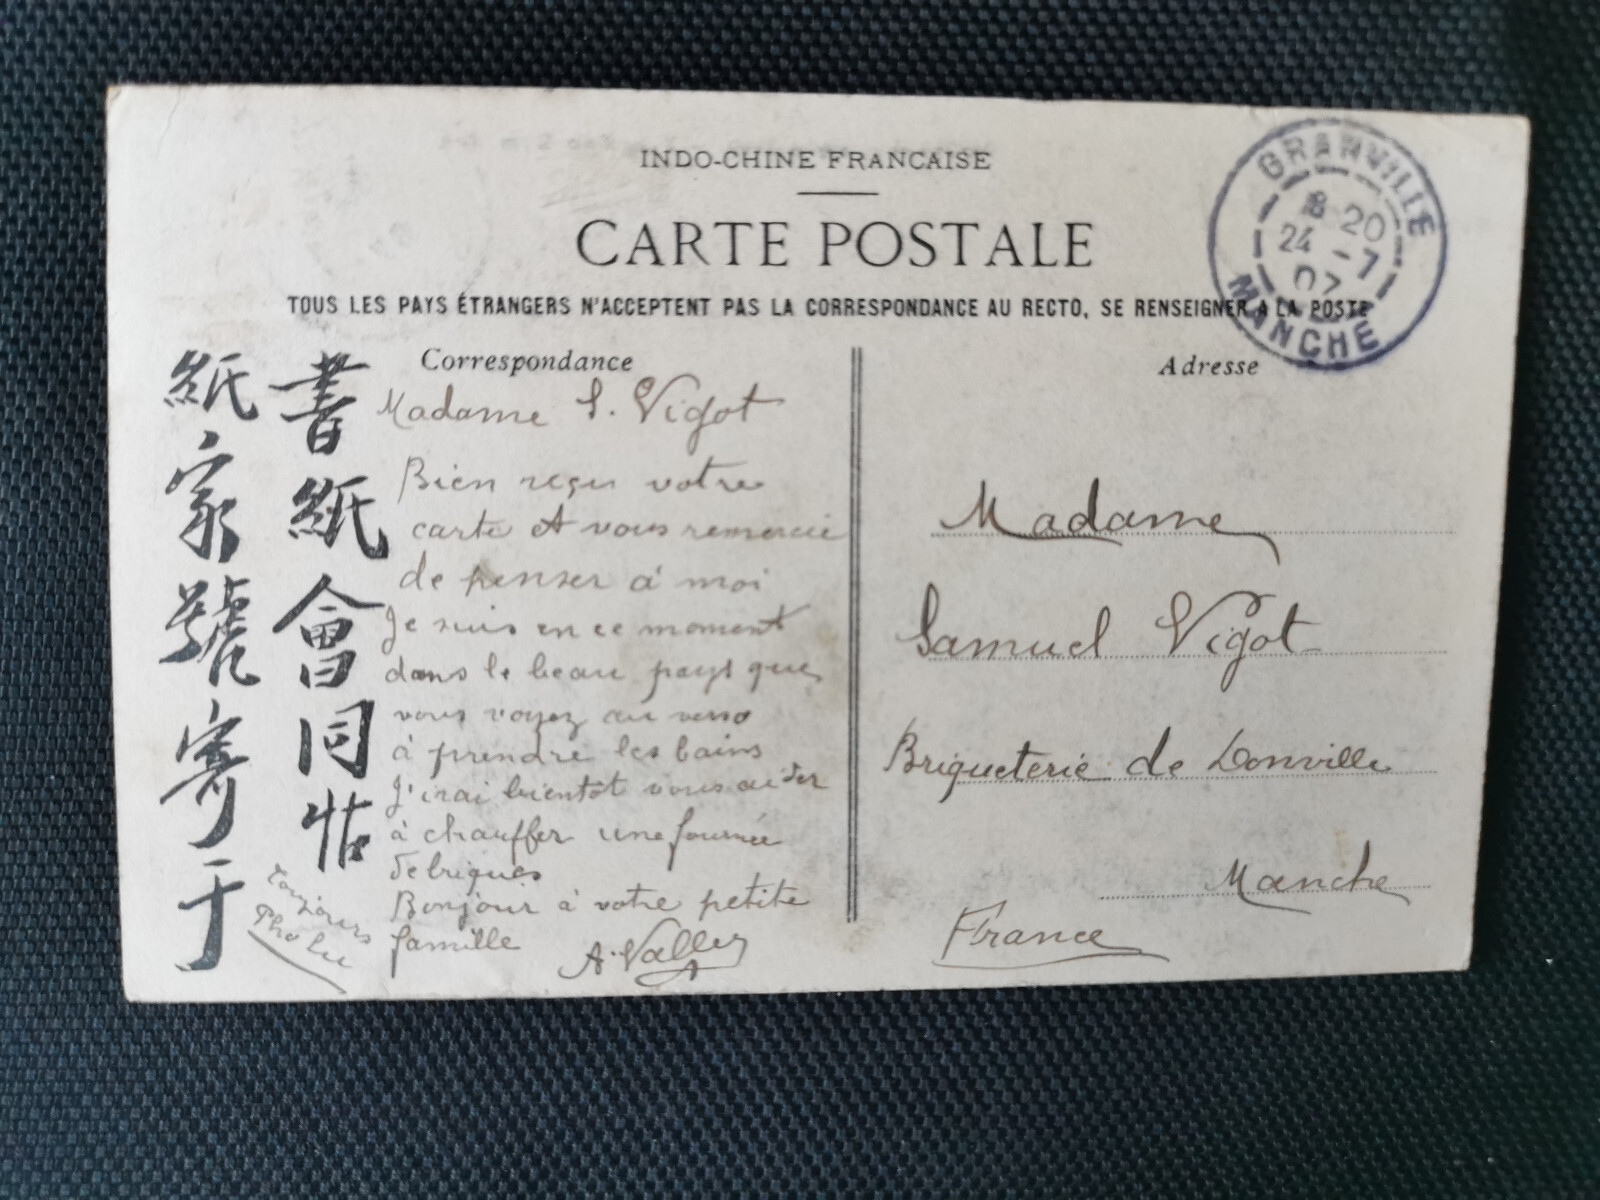 INDO-CHINE FRANÇAISE
CARTE POSTALE
TOUS LES PAYS ÉTRANGERS N'ACCEPTENT PAS LA CORRESPONDANCE AU RECTO, SE RENSEIGNER A LA POSTE
GRANVILLE
18 20
24 -7
07
MANCHE
Correspondance
Madame S. Vigot
Bien reçu votre
carte et vous remercie
de penser à moi
Je suis en ce moment
dans le beau pays que
vous voyez au verso
à prendre les bains
J'irai bientôt vous aider
à chauffer une fournée
de briques
Bonjour à votre petite
famille
A. Valley
toujours
Phu lu
書紙會同
紙家號寄于
Adresse
Madame
Samuel Vigot
Briqueterie de Donville
Manche
France